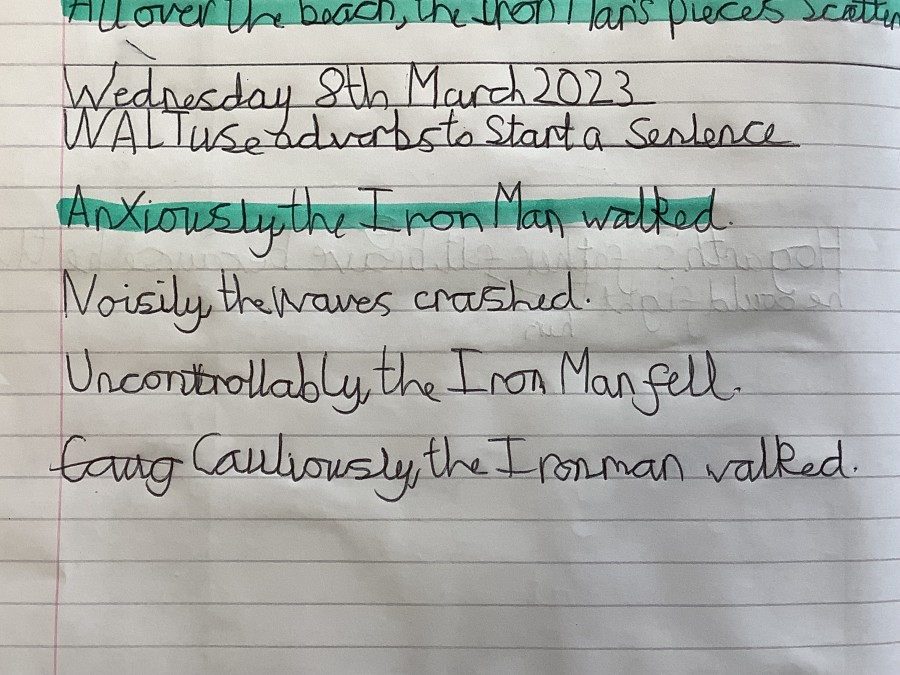 All over the beach, the Iron Man's pieces
Wednesday 8th March 2023
WALT use adverbs to Start a Sentence
Anxiously, the Iron Man walked.
Noisily, the waves crashed.
Uncontrollably, the Iron Man fell.
Caug Cautiously, the Iron man walked.